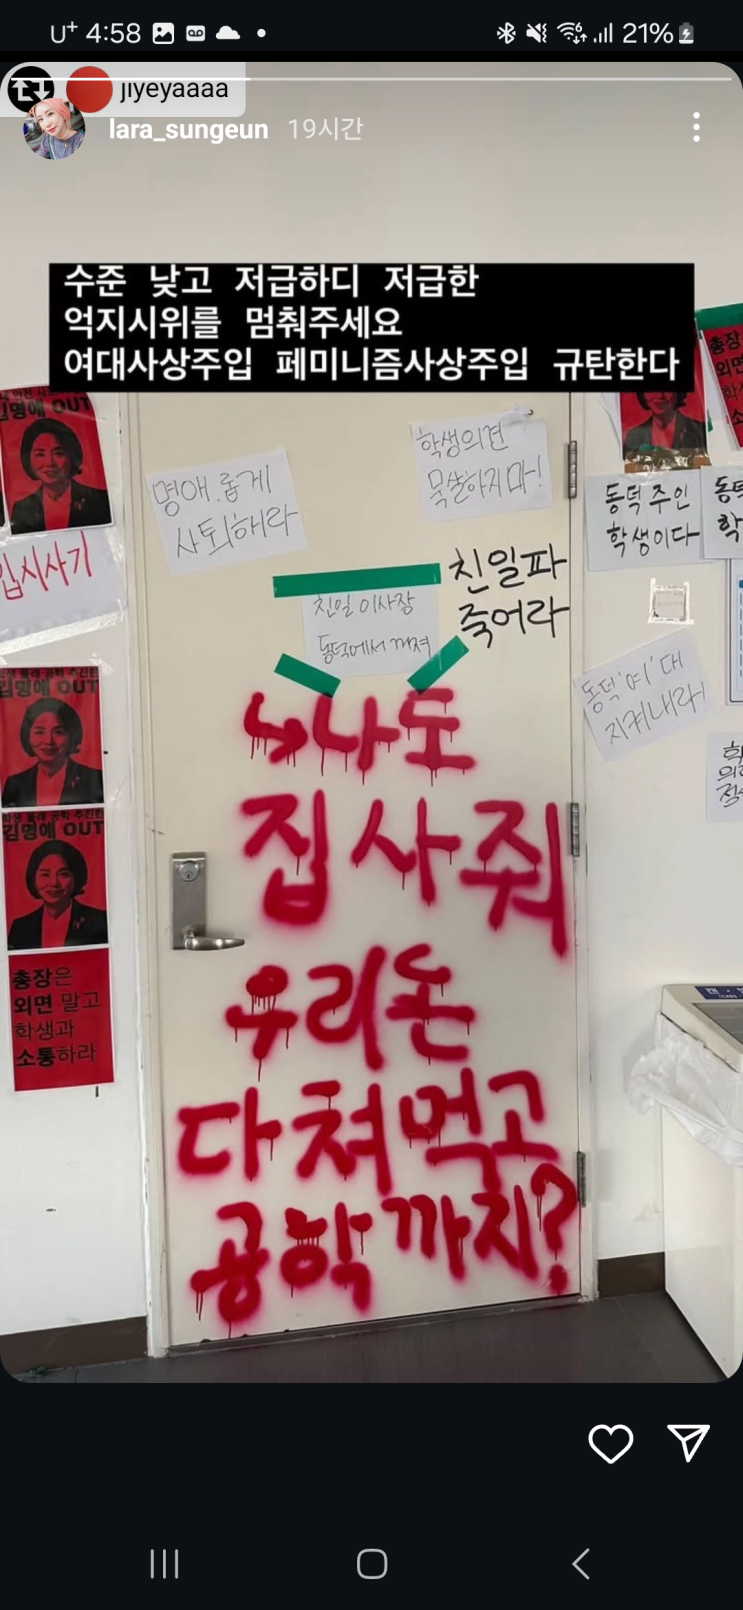 U⁺ 4:58
21%
jiyeyaaaa
lara_sungeun 19시간
수준 낮고 저급하디 저급한
억지시위를 멈춰주세요
여대사상주입 페미니즘사상주입 규탄한다
김명애 OUT
입시사기
김명애 OUT
김명애 OUT
총장은
외면 말고
학생과
소통하라
명애롭게
사퇴해라
학생의견
묵살하지마!
친일 이사장
동덕에서 꺼져
친일파
죽어라
↳나도
집 사줘
우리돈
다 쳐먹고
공학까지?
총장
외면
동덕 주인
학생이다
동덕
학
동덕'여'대
지켜내라!
캔